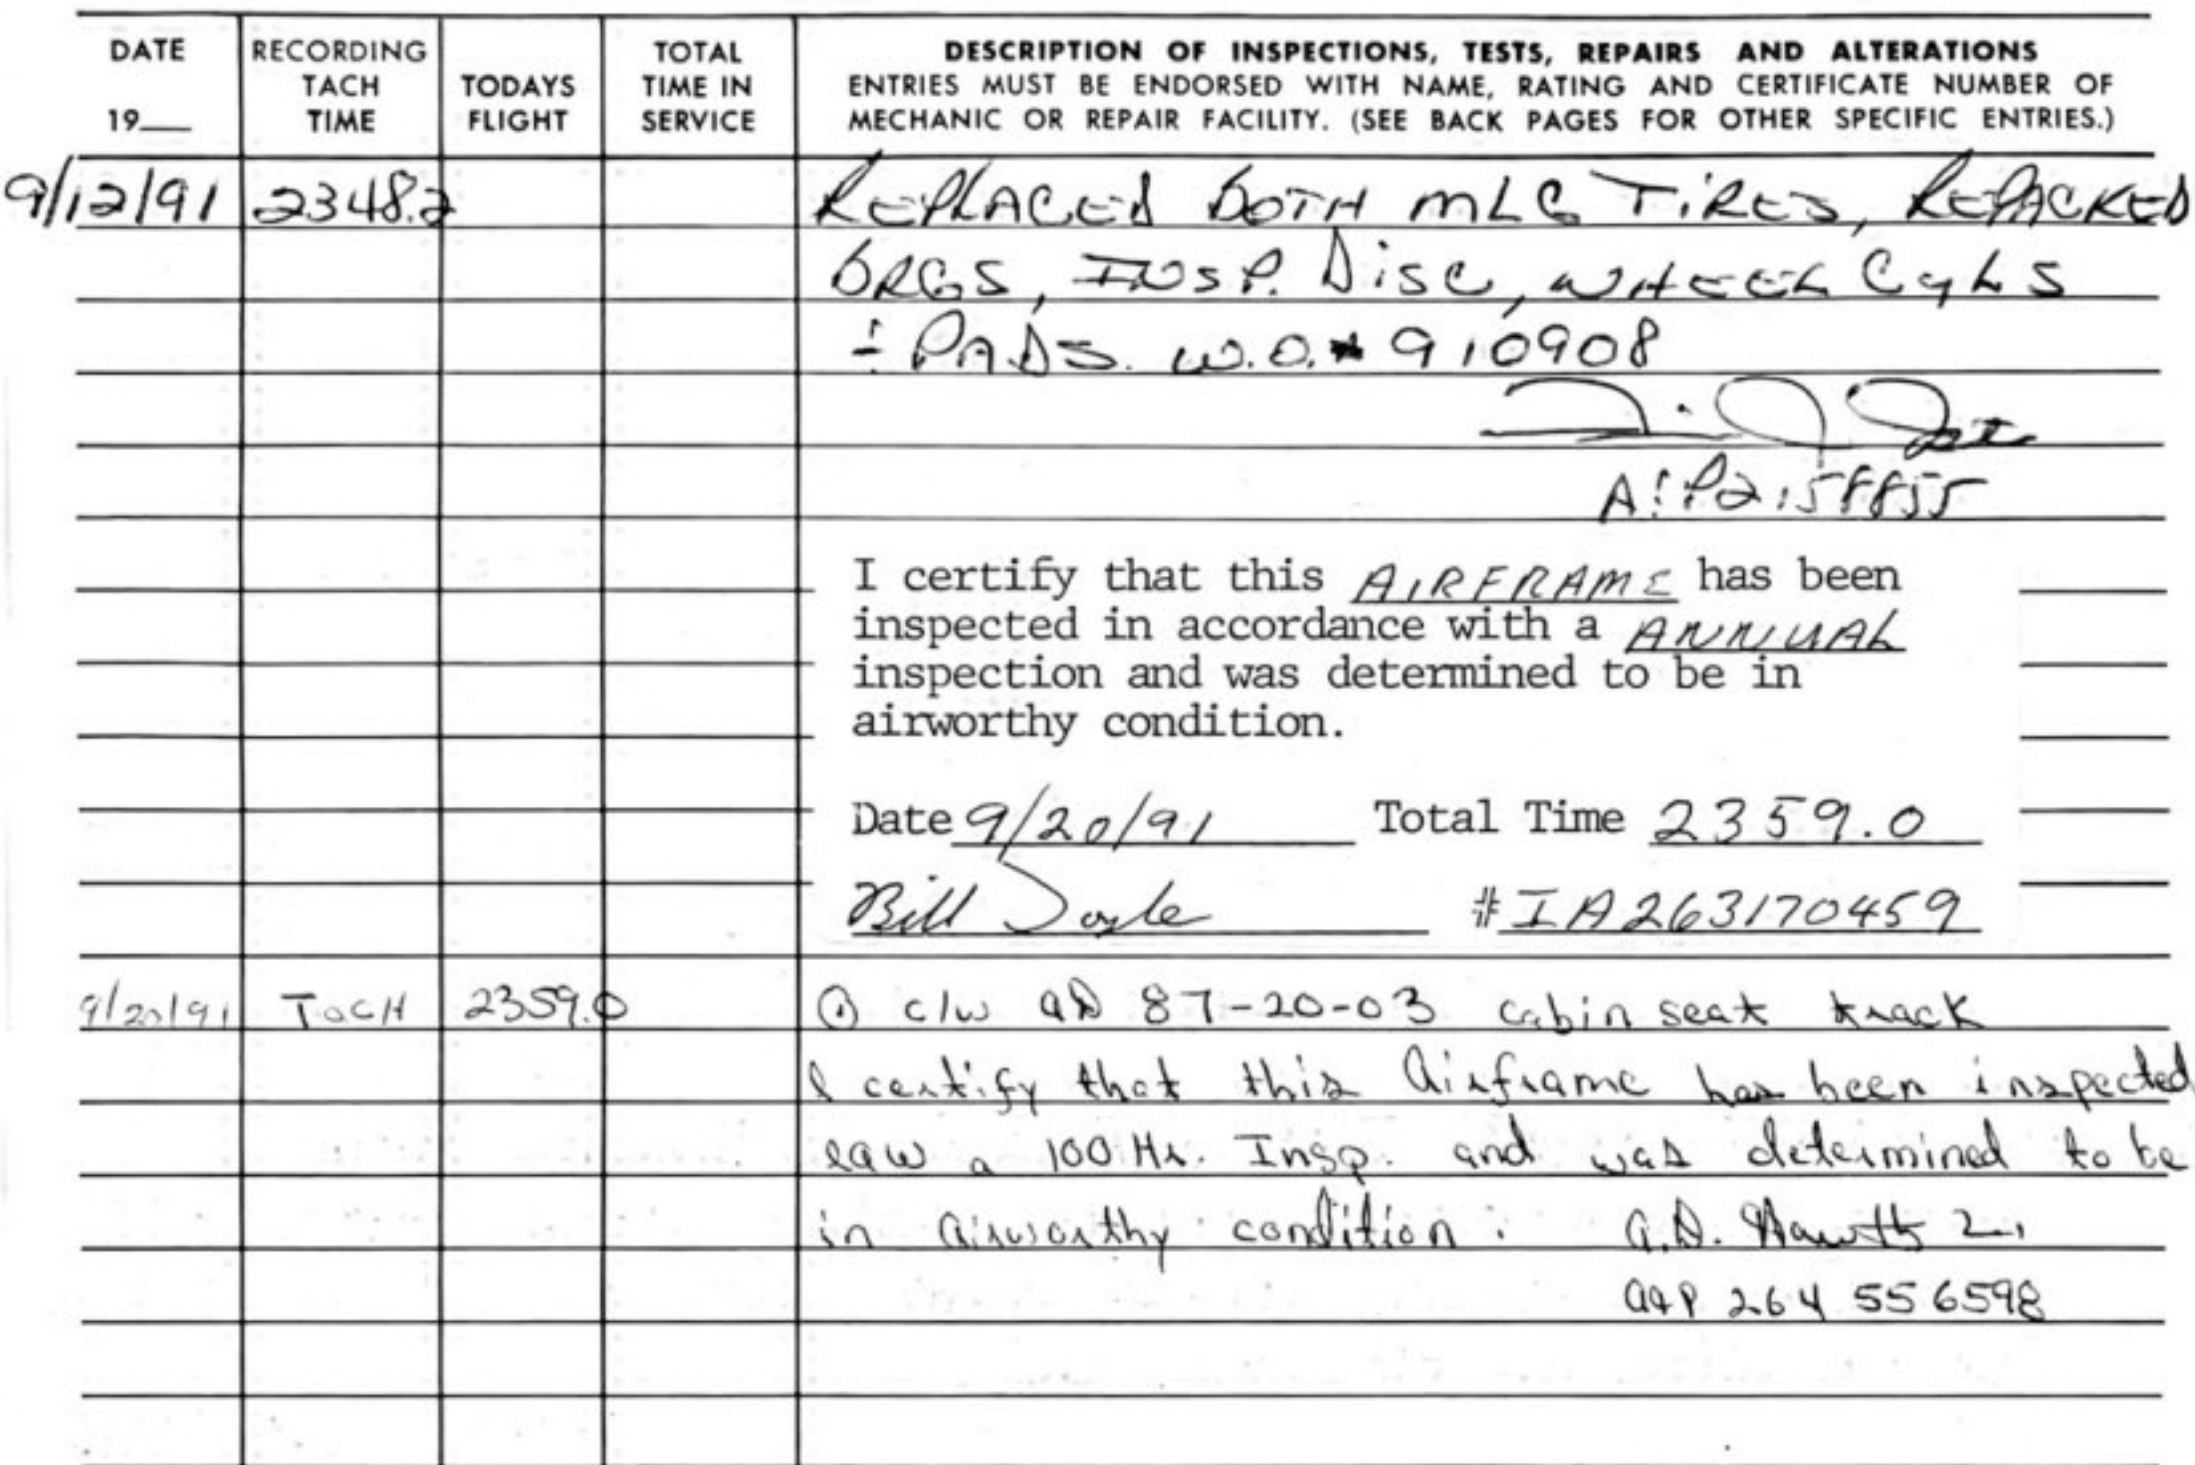 DATE RECORDING TOTAL DESCRIPTION OF INSPECTIONS, TESTS, REPAIRS AND ALTERATIONS
TACH TODAYS TIME IN ENTRIES MUST BE ENDORSED WITH NAME, RATING AND CERTIFICATE NUMBER OF
19__ TIME FLIGHT SERVICE MECHANIC OR REPAIR FACILITY. (SEE BACK PAGES FOR OTHER SPECIFIC ENTRIES.)
9/12/91 2348.2 REPLACED BOTH MLG TIRES, REPACKED
BRGS, INSP. DISC, WHEEL CYLS
& PADS. W.O.# 910908
A&P 2158855
I certify that this AIRFRAME has been
inspected in accordance with a ANNUAL
inspection and was determined to be in
airworthy condition.
Date 9/20/91 Total Time 2359.0
Bill Doyle #IA263170459
9/20/91 TACH 2359.0 ① c/w AD 87-20-03 cabin seat track
I certify that this Airframe has been inspected
IAW a 100 Hr. Insp. and was determined to be
in airworthy condition. A.D.
A&P 264 556598